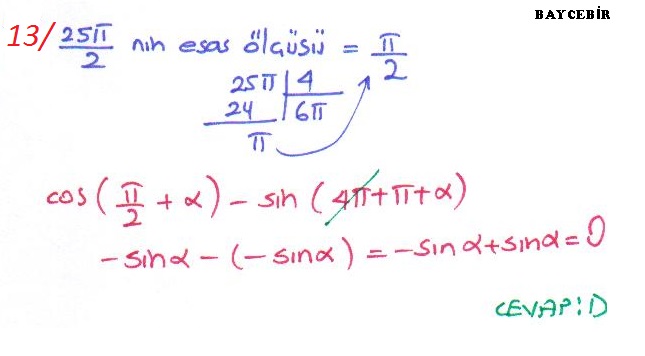 BAYCEBİR
13/ 25π/2 nin esas ölçüsü = π/2
25π | 4
24 | 6π
π
cos(π/2 + α) - sin (4π+π+α)
-sinα - (-sinα) = -sinα+sinα=0
CEVAP:D